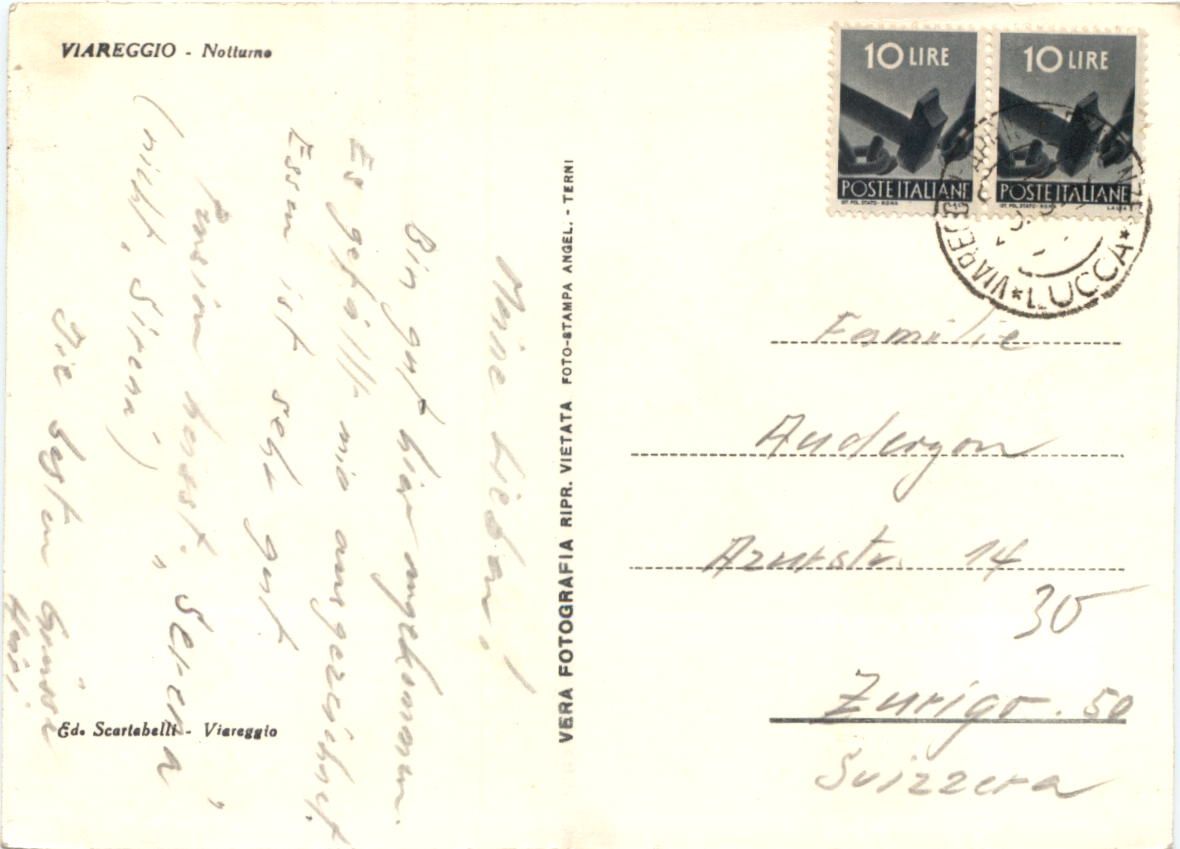 VIAREGGIO - Notturno
Meine Lieben!
Bin gut hier angekommen.
Es gefällt mir ausgezeichnet.
Essen ist sehr gut
Pension heisst. „Serena"
(nicht, Sirena)
Die besten Grüsse
Ed. Scartabelli - Viareggio
VERA FOTOGRAFIA RIPR. VIETATA FOTO-STAMPA ANGEL. - TERNI
10 LIRE
POSTE ITALIANE
10 LIRE
POSTE ITALIANE
VIAREGGIO
*LUCCA*
Familie
Anderegon
Azurstr. 14
30
Zurigo. 50
Svizzera